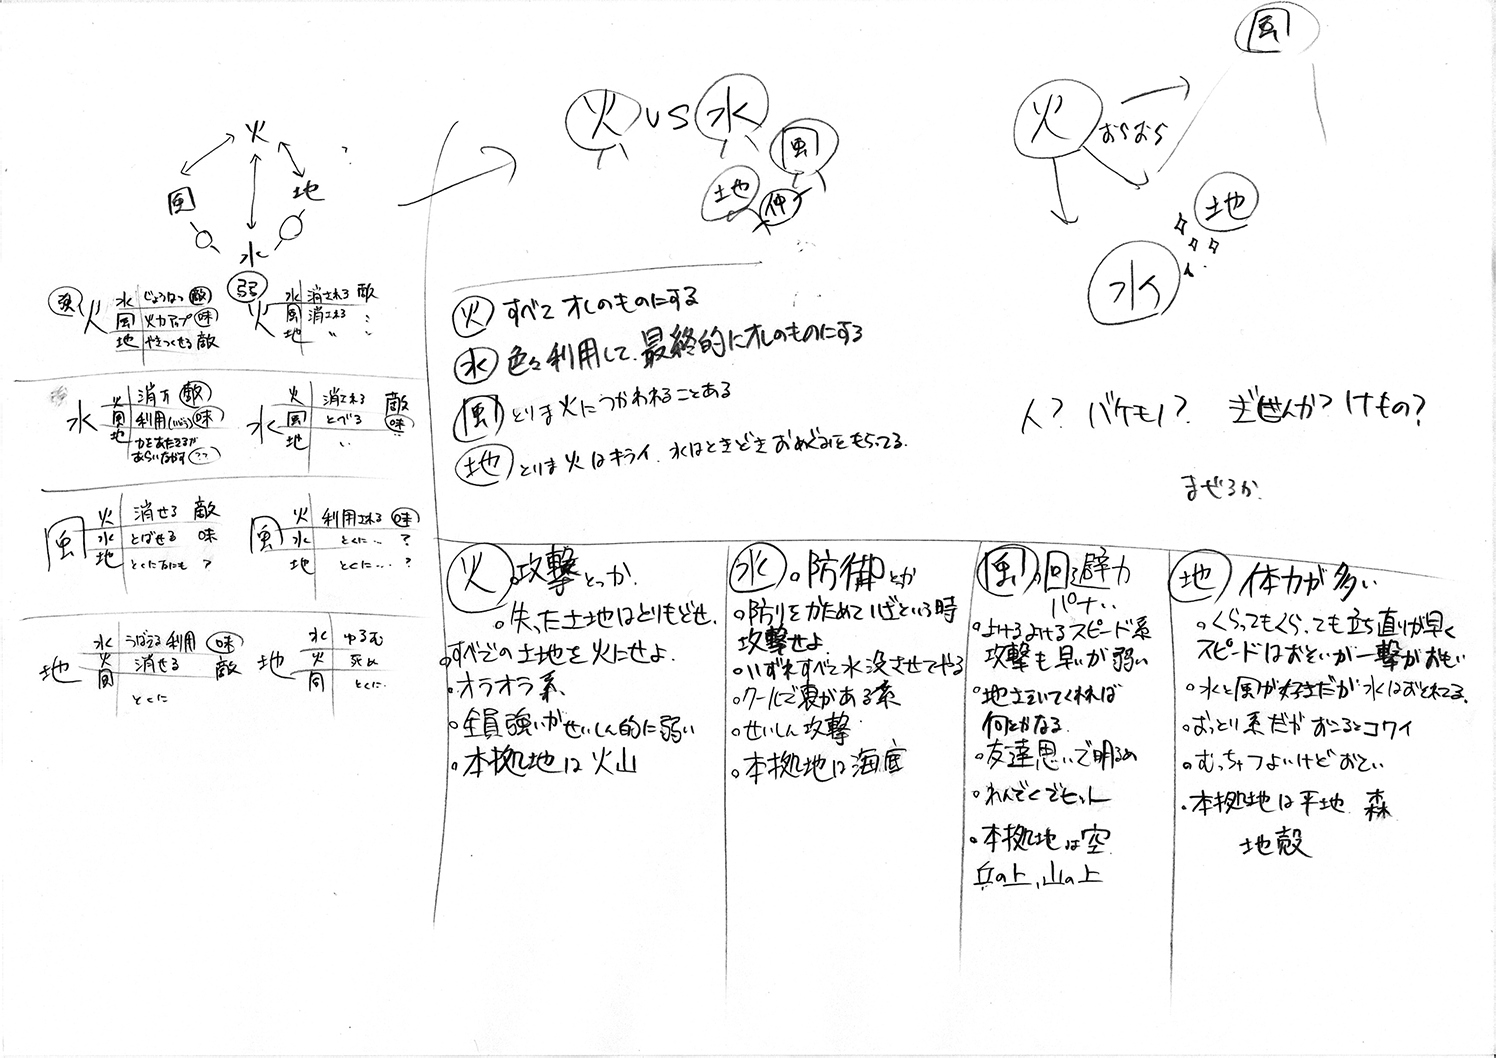 火
風
地
水
?
強
火
水 じょうはつ 敵
風 火力アップ 味
地 やきつくせる 敵
弱
火
水 消される 敵
風 消される 〃
地 〃 〃
水
火 消す 敵
風 利用(いろいろ) 味
地
あらいながす ??
水
火 消される 敵
風 とべる 味
地 〃
風
火 消せる 敵
水 とばせる 味
地 とくに ?
風
火 利用される 味
水 とくに… ?
地 とくに… ?
地
水 うばえる 利用 味
火 消せる 敵
風 とくに
地
水 ゆるむ
火 死ぬ
風 とくに…
火 VS 水
風
地
仲
火
おらおら
風
地
水
火 すべてオレのものにする
水 色々利用して、最終的にオレのものにする
風 とりま火につかわれることある
地 とりま火はキライ、水はときどきおめぐみをもらってる。
人? バケモノ? ぎぜんか? けもの?
まぜるか
火 。攻撃とか
。失った土地はとりもどせ。
すべての土地を火にせよ。
。オラオラ系
。全員強いがせいしん的に弱い
。本拠地は火山
水 。防御とか
。防りをかためていざという時
攻撃せよ
。いずれすべて水没させてやる
。クールで裏がある系
。せいしん攻撃
。本拠地は海底
風 。回避力
パナい
。よけるよけるスピード系
攻撃も早いが弱い
。地さえいてくれば
何とかなる
。友達思いで明るめ
。れんぞくでヒット
。本拠地は空
兵の上、山の上
地 体力が多い
。くらってもくらっても立ち直りが早く
スピードはおそいが一撃がおもい
。水と風が好きだが水はおそれてる。
。おっとり系だがおこるとコワイ
。むっちゃつよいけどおそい
。本拠地は平地 森
地殻